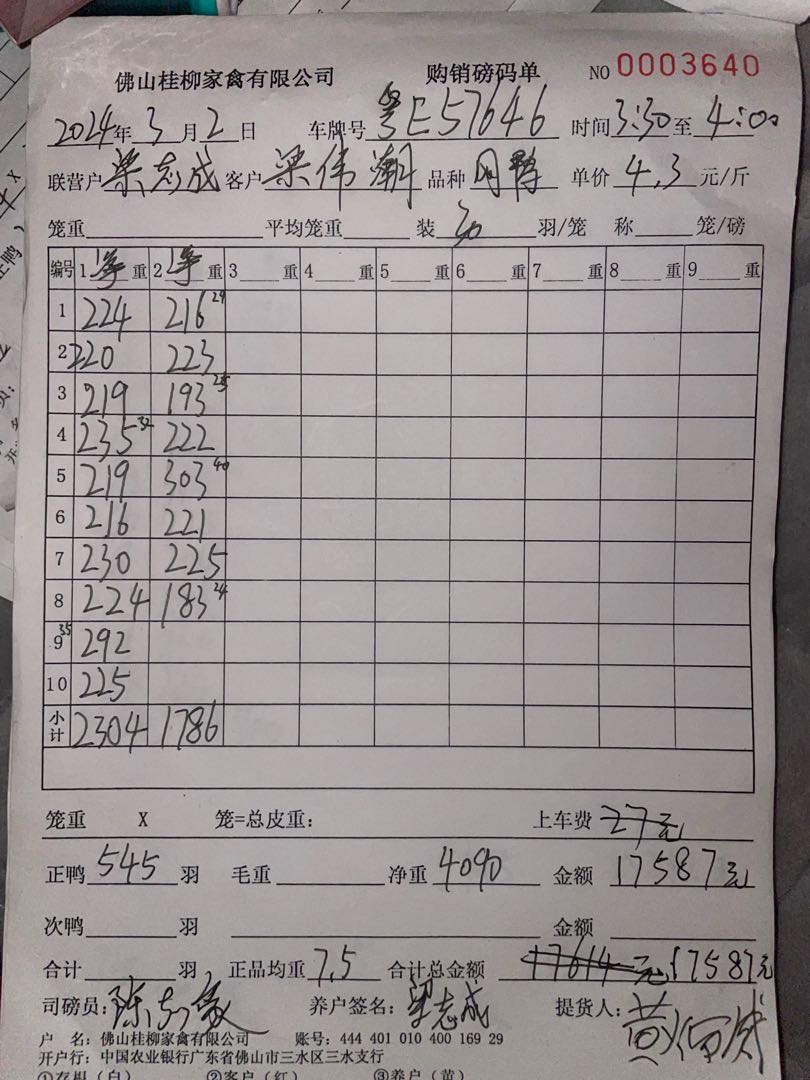 佛山桂柳家禽有限公司 购销磅码单 NO 0003640
2024年 3月 2日 车牌号 粤E57646 时间 3:30 至 4:00
联营户 梁志成 客户 梁伟潮 品种 单价 4.3 元/斤
笼重 平均笼重 装 30 羽/笼 称 笼/磅
编号 1 净重 2 净重 3 重 4 重 5 重 6 重 7 重 8 重 9 重
1 224 216 29
2 220 223
3 219 193 25
4 235 32 222
5 219 303 40
6 216 221
7 230 225
8 224 183 24
9 35 292
10 225
小计 2304 1786
笼重 X 笼=总皮重: 上车费 27元
正鸭 545 羽 毛重 净重 4090 金额 17587元
次鸭 羽 金额
合计 羽 正品均重 7.5 合计总金额 17614元 17587元
司磅员: 养户签名: 梁志成 提货人:
户 名: 佛山桂柳家禽有限公司 账号: 444 401 010 400 169 29
开户行: 中国农业银行广东省佛山市三水区三水支行
①存根(白) ②客户(红) ③养户(黄)